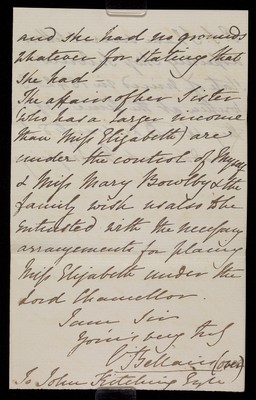 and she had no grounds
whatever for stating that
she had -
The affairs of her Sister
(who has a larger income
than Miss Elizabeth) are
under the control of myself
& Miss Mary Bowlby & the
family wish us also to be
entrusted with the necessary
arrangements for placing
Miss Elizabeth under the
Lord Chancellor.
I am Sir
Yours very truly
(over)
To John Kitching Esqre